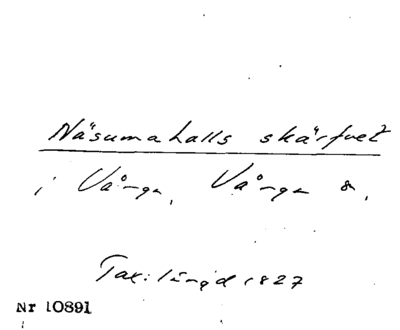 Näsumahalls skärfvet
i Vånga, Vånga s,
Tax: längd 1827
Nr 10891